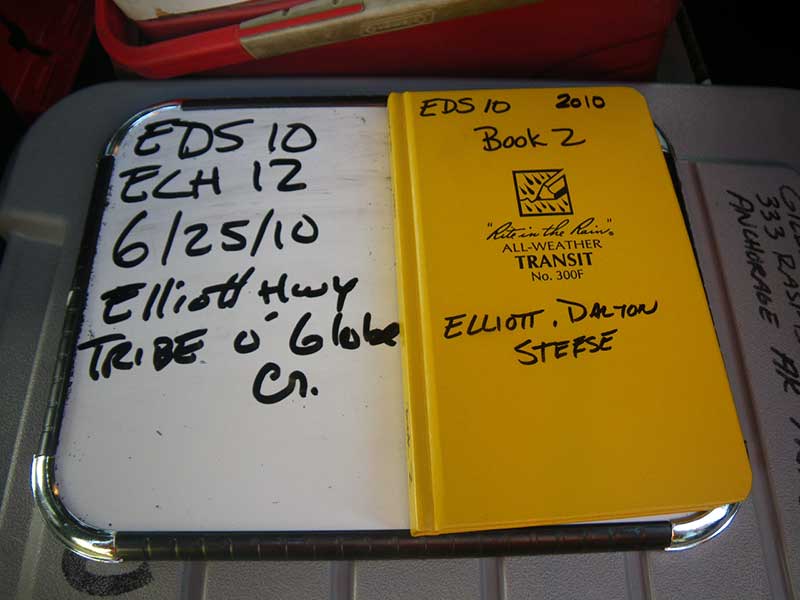 EDS 10
ECH 12
6/25/10
Elliott Hwy
TRIBE O' Globe
Cr.
EDS 10 2010
Book 2
"Rite in the Rain"
ALL-WEATHER
TRANSIT
No. 300F
ELLIOTT, DALTON
STEESE
333 RASP
ANCHORAGE AK